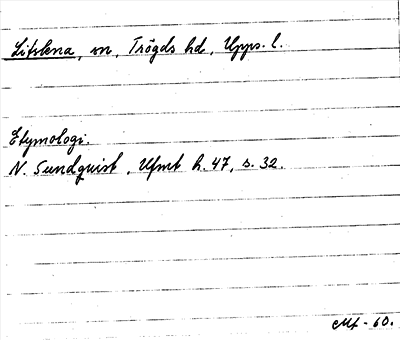 Litslena, sn, Trögds hd, Upps. l.
Etymologi.
N. Sundquist, Ufmt h. 47, s. 32.
Mf - 60.